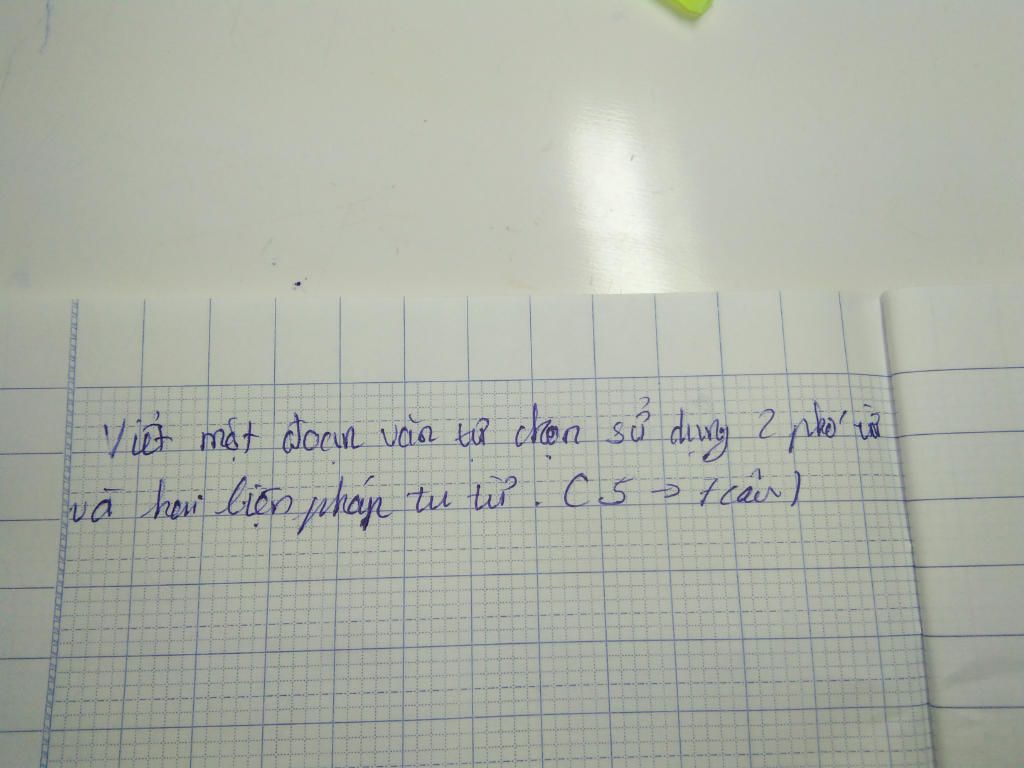 Viết một đoạn văn tự chọn sử dụng 2 phó từ
và hai biện pháp tu từ. (5 → 7 câu)